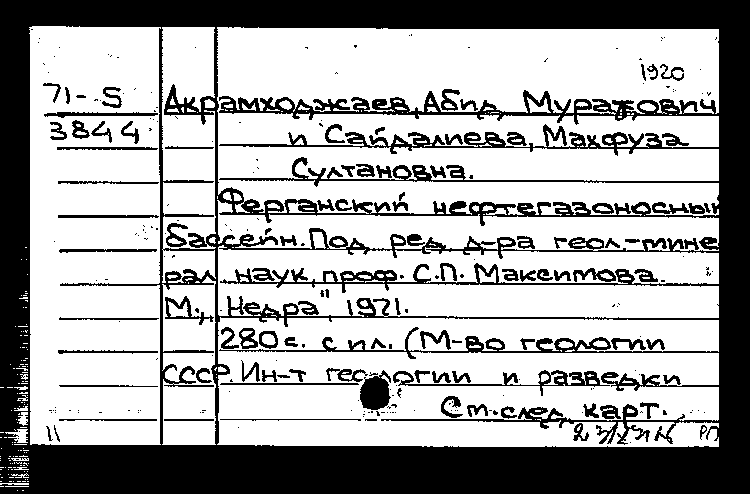 1920
71-5 Акрамходжаев, Абид Муратович
3844 и Сайдалиева, Махфуза
Султановна.
Ферганский нефтегазоносный
бассейн. Под ред. д-ра геол.-мине
рал. наук, проф. С.П. Максимова.
М., "Недра", 1971.
280 с. с ил. (М-во геологии
СССР. Ин-т геологии и разведки
См. след. карт.
11 РП